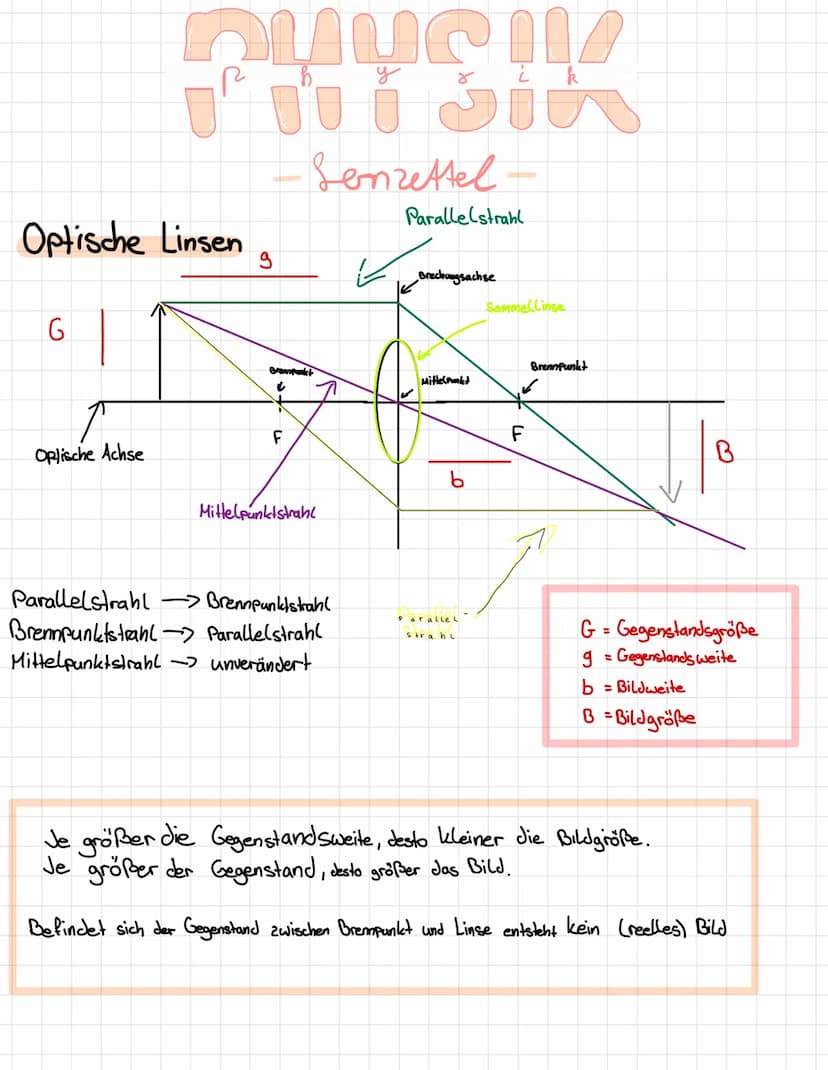 PHYSIK
Physik
- Lernzettel -
Parallelstrahl
Optische Linsen
g
Brechungsachse
Sammellinse
G
Brennpunkt
Mittelpunkt
Brennpunkt
F
F
Optische Achse
B
b
Mittelpunktstrahl
Parallel-
strahl
Parallelstrahl —> Brennpunktstrahl
Brennpunktstrahl —> Parallelstrahl
Mittelpunktstrahl —> unverändert
G = Gegenstandsgröße
g = Gegenstandsweite
b = Bildweite
B = Bildgröße
Je größer die Gegenstandsweite, desto kleiner die Bildgröße.
Je größer der Gegenstand, desto größer das Bild.
Befindet sich der Gegenstand zwischen Brennpunkt und Linse entsteht kein (reelles) Bild